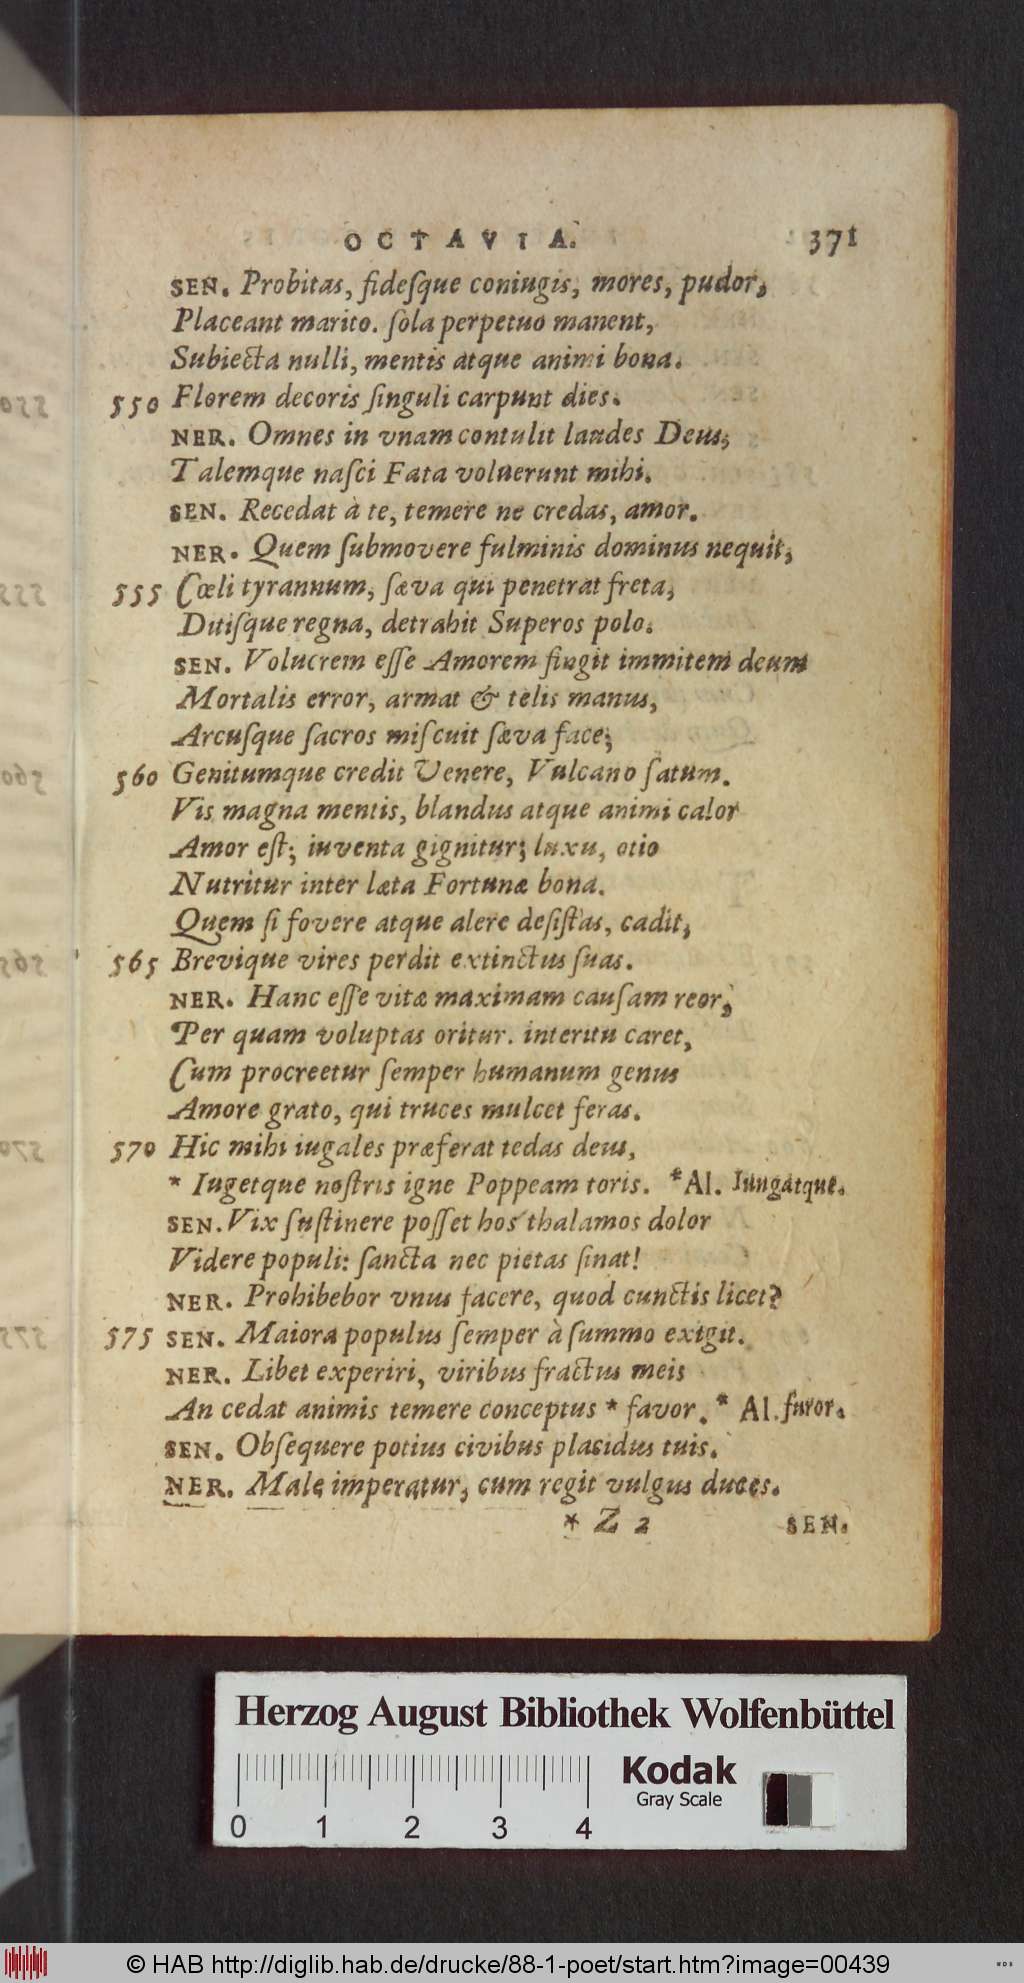 OCTAVIA. 371
SEN. Probitas, fideſque coniugis, mores, pudor,
Placeant marito. ſola perpetuo manent,
Subiecta nulli, mentis atque animi bona.
550 Florem decoris ſinguli carpunt dies.
NER. Omnes in vnam contulit laudes Deus,
Talemque naſci Fata voluerunt mihi.
SEN. Recedat à te, temere ne credas, amor.
NER. Quem ſubmovere fulminis dominus nequit,
555 Cœli tyrannum, ſæva qui penetrat freta,
Ditiſque regna, detrahit Superos polo.
SEN. Volucrem eſſe Amorem fingit immitem deum
Mortalis error, armat & telis manus,
Arcuſque ſacros miſcuit ſæva face;
560 Genitumque credit Venere, Vulcano ſatum.
Vis magna mentis, blandus atque animi calor
Amor eſt; iuventa gignitur; luxu, otio
Nutritur inter læta Fortunæ bona.
Quem ſi fovere atque alere deſiſtas, cadit,
565 Brevique vires perdit extinctus ſuas.
NER. Hanc eſſe vitæ maximam cauſam reor,
Per quam voluptas oritur. interitu caret,
Cum procreetur ſemper humanum genus
Amore grato, qui truces mulcet feras.
570 Hic mihi iugales præferat tedas deus,
* Iugetque noſtris igne Poppeam toris. *Al. Iungatque.
SEN. Vix ſuſtinere poſſet hos thalamos dolor
Videre populi: ſancta nec pietas ſinat!
NER. Prohibebor vnus facere, quod cunctis licet?
575 SEN. Maiora populus ſemper à ſummo exigit.
NER. Libet experiri, viribus fractus meis
An cedat animis temere conceptus * favor. * Al. furor.
SEN. Obſequere potius civibus placidus tuis.
NER. Male imperatur, cum regit vulgus duces.
* Z 2 SEN.
Herzog August Bibliothek Wolfenbüttel
Kodak
Gray Scale
0 1 2 3 4
© HAB http://diglib.hab.de/drucke/88-1-poet/start.htm?image=00439